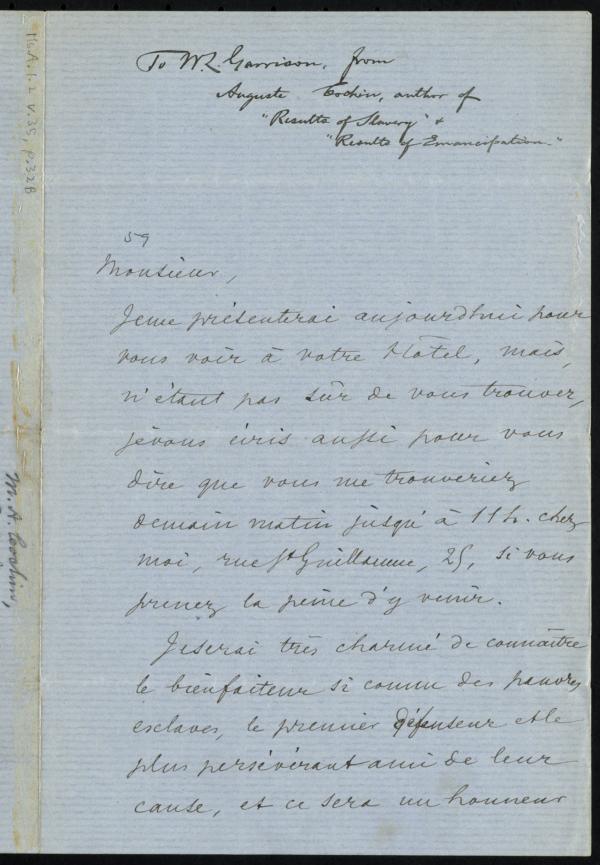 To W. L. Garrison, from
Auguste Cochin, author of
"Results of Slavery" &
"Results of Emancipation."
59
Monsieur,
Je me présenterai aujourd'hui pour
vous voir à votre Hôtel, mais,
n'étant pas sûr de vous trouver,
je vous écris aussi pour vous
dire que vous me trouveriez
demain matin jusqu'à 11 h. chez
moi, rue St Guillaume, 25, si vous
prenez la peine d'y venir.
Je serai très charmé de connaître
le bienfaiteur si connu des pauvres
esclaves, le premier défenseur et le
plus persévérant ami de leur
cause, et ce sera un honneur
Ms.A.1.2 v.35, p.32B
M. A. Cochin,